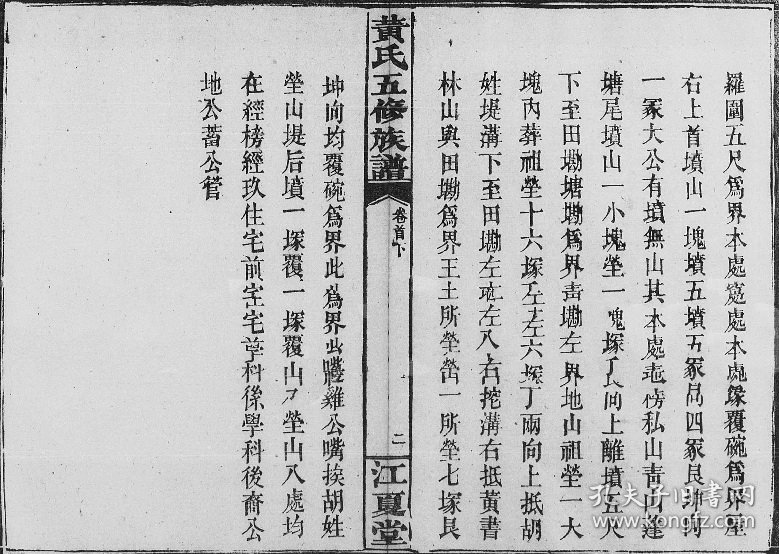 羅圍五尺爲界本處窓處本處錄覆碗爲界座
右上首墳山一塊墳五墳五冢昌四冢艮坤向
一冢大公有墳無山其本處傍私山靑山逢
塘尾墳山一小塊塋一塊塚丁艮向上離墳五尺
下至田墈塘墈爲界靑墈左界地山祖塋一大
塊內葬祖塋十六塚左左六塚丁兩向上抵胡
姓堤溝下至田墈左左八右挖溝右抵黃書
林山與田墈爲界王土所塋一所塋七塚艮
黃氏五修族譜
卷首下
二
江夏堂
坤向均覆碗爲界此爲界雞公嘴挨胡姓
塋山堤后墳一塚覆一塚覆山塋山八處均
在經榜經玖住宅前宅宅科係學科後裔公
地公蓄公管
孔夫子旧书网